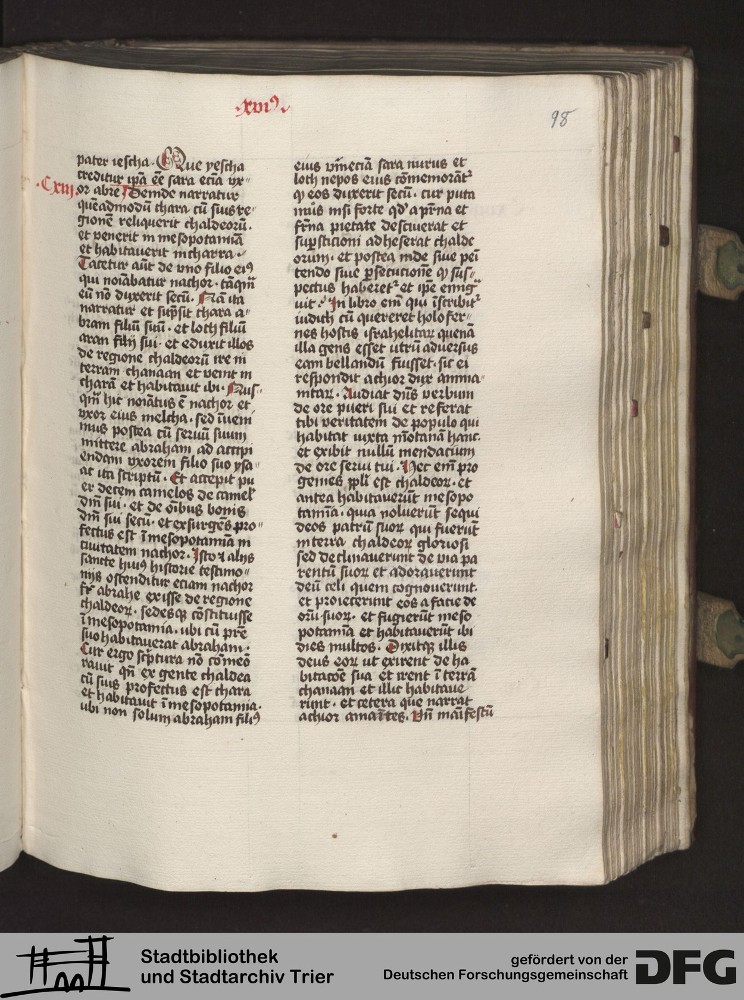 .xvi⁹.
98
pater iescha. Que yescha
creditur ip̄a eē sara ecia vx-
.Cxiij.
or abre Deinde narratur
quēadmodū thara cū suis re-
gionē reliquerit chaldeorū.
et venerit in mesopotamiā
et habitauerit in charra.
Tacetur aūt de vno filio ei⁹
qui noīabatur nachor. tāqm̄
eū nō duxerit secū. Nā ita
narratur et sūpsit thara a-
bram filiū suū. et loth filiū
aran filij sui. et eduxit illos
de regione chaldeorū ire in
terram chanaan et venit in
charā et habitauit ibi. Nus-
qm̄ hic noīatus ē nachor et
vxor eius melcha. sed īueni
mus postea cū seruū suum
mittere abraham ad accipi
endam vxorem filio suo ysa-
ac ita scriptū. Et accepit pu
er decem camelos de camel'
dn̄i sui. et de oībus bonis
dn̄i sui secū. et exsurges pro-
fectus est ī mesopotamiam in
ciuitatem nachor. Isto ⁊ alijs
sancte hui⁹ historie testimo-
nijs ostenditur eciam nachor
fr̄ abrahe exisse de regione
chaldeoꝝ. sedesqꝫ cōstituisse
ī mesopotamia. ubi cū pr̄e
suo habitauerat abraham.
Cur ergo scͥptura nō cōmeō
rauit qn̄ ex gente chaldea
cū suis profectus est thara
et habitauit ī mesopotamia.
ubi non solum abraham fili⁹
eius vm̄eciā sara nurus et
loth nepos eius cōmemorāt᷑
qꝫ eos duxerit secū. cur puta
mus nisi forte qd' a pr̄na et
fr̄na pietate desciuerat et
suꝑsticioni adheserat chalde
orum. et postea inde siue pei
tendo siue ꝑsecutione qꝫ sus-
pectus haberet᷑ et ip̄e emig
uit. In libro em̄ qui īscribit᷑
iudith cū quereret holofer-
nes hostis israhelitaꝝ quenā
illa gens esset utrū aduersus
eam bellandū fuisset. sic ei
respondit achior dux amma-
nitaꝝ. Audiat dn̄s verbum
de ore pueri sui et referat
tibi veritatem de populo qui
habitat iuxta mōtanā hanc.
et exibit nullū mendacium
de ore serui tui. Hec em̄ pro
genies ppl'i est chaldeoꝝ. et
antea habitauerūt mesopo
tamiā. quia noluerūt sequi
deos patrū suoꝝ qui fuerūt
in terra chaldeoꝝ gloriosi
sed declinauerunt de via pa
rentū suoꝝ et adorauerunt
deū celi quem cognouerunt.
et proiecerunt eos a facie de
orū suoꝝ. et fugierūt meso
potamiā et habitauerūt ibi
dies multos. Dixitqꝫ illis
deus eoꝝ ut exirent de ha
bitacōe sua et irent ī terrā
chanaan et illic habitaue
runt. et cetera que narrat
achior amaītes. Vn̄ māifestū
Stadtbibliothek
und Stadtarchiv Trier
gefördert von der
Deutschen Forschungsgemeinschaft
DFG